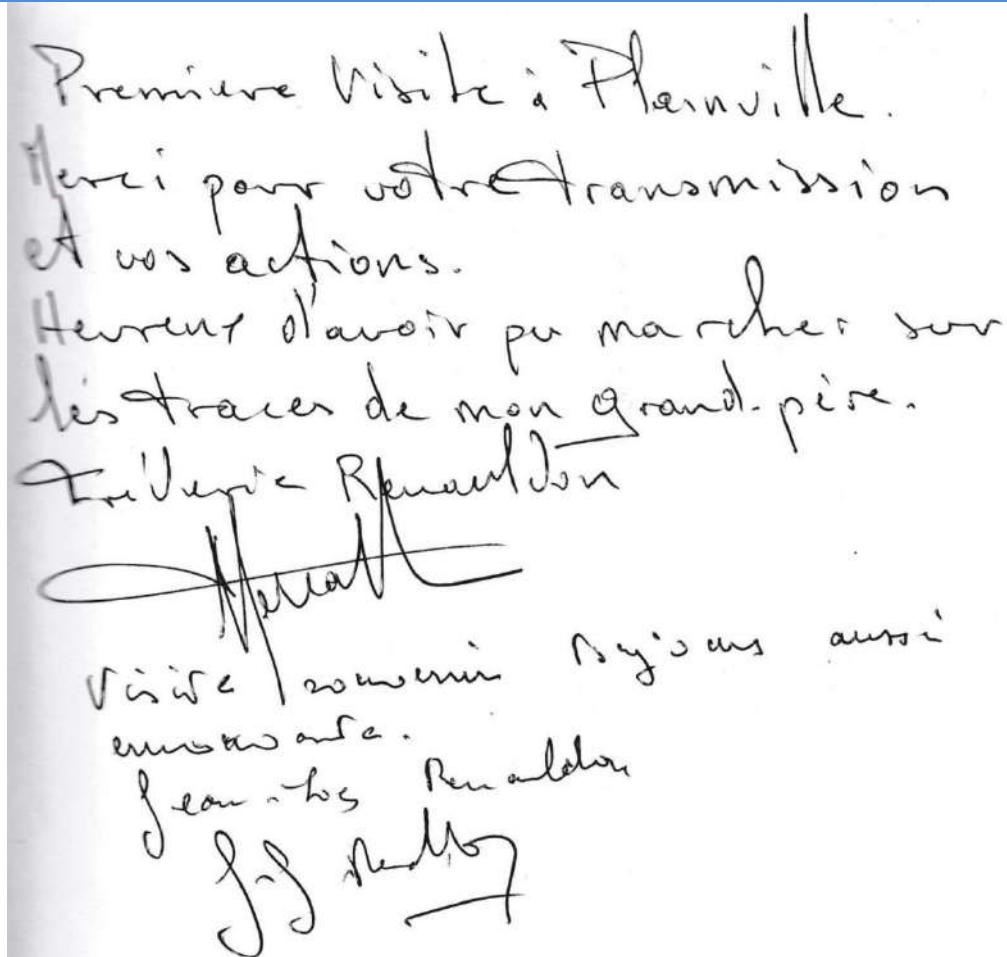 Première Visite à Plainville.
Merci pour votre transmission
et vos actions.
Heureux d'avoir pu marcher sur
les traces de mon grand-père.
Frédéric Renauldon
Visite souvenir toujours aussi
émouvante.
Jean- Renauldon